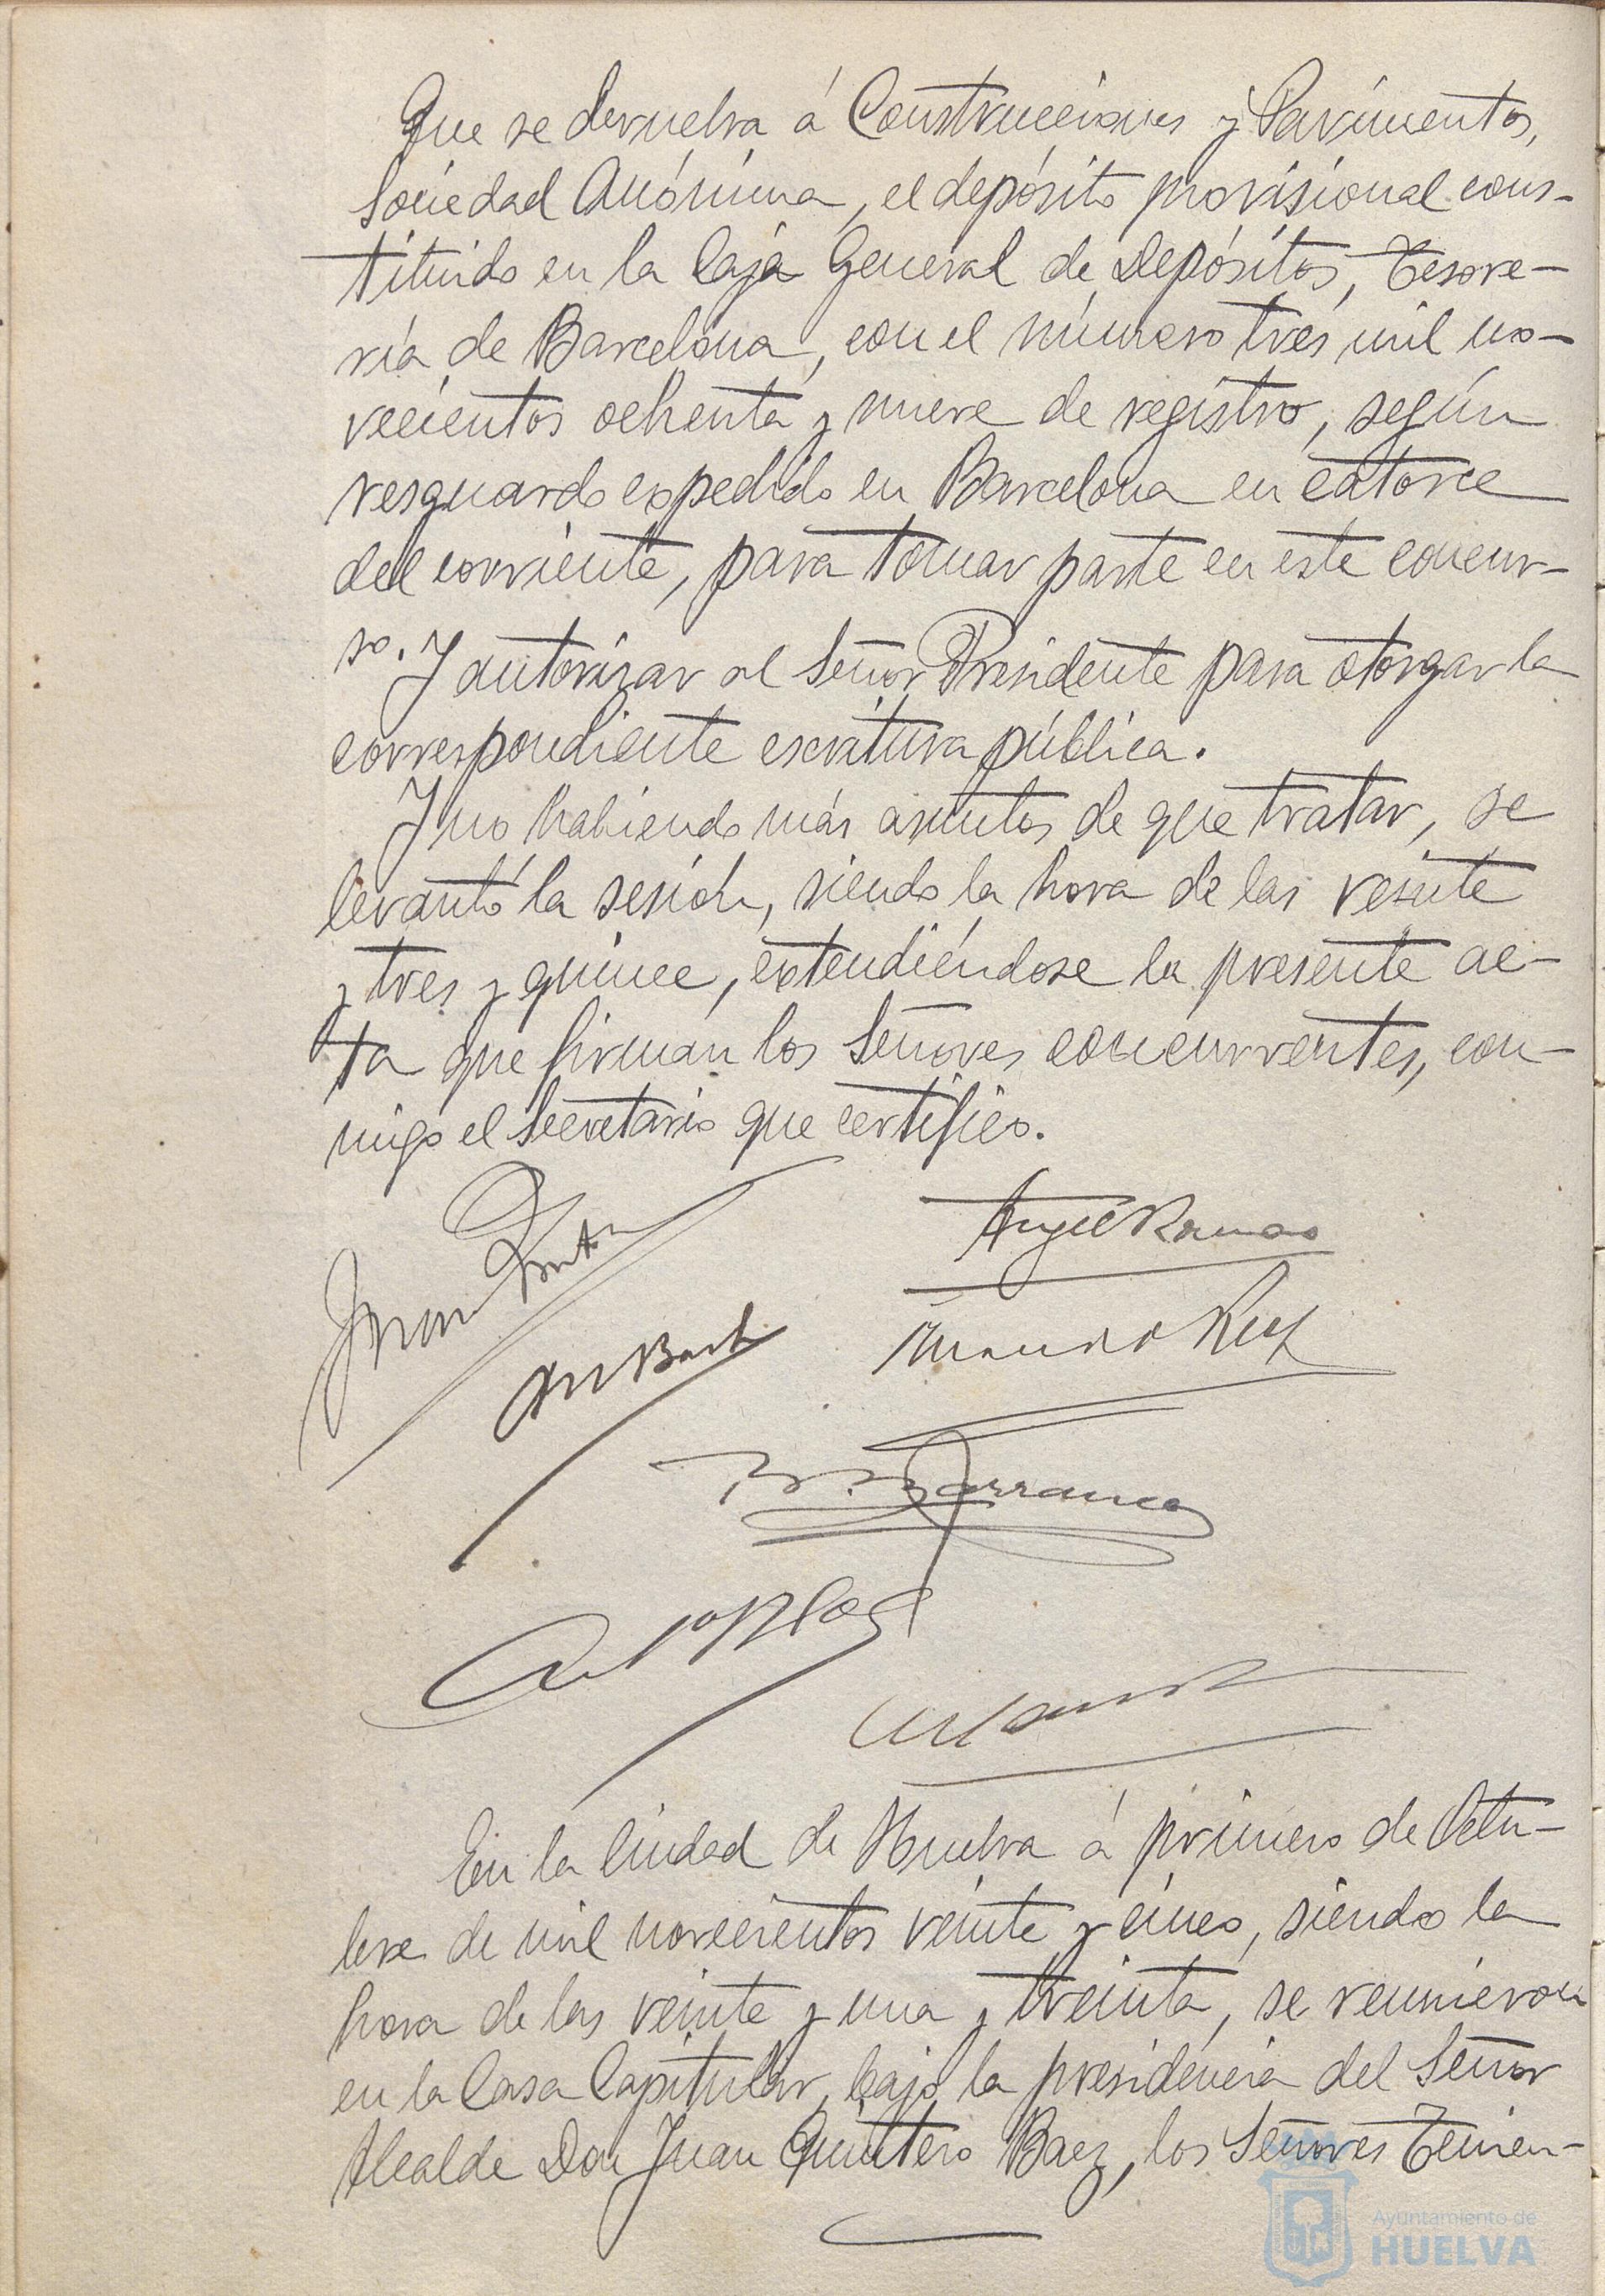 Que se devuelva á Construcciones y Pavimentos,
Sociedad Anónima, el depósito provisional cons-
tituido en la Caja General de Depósitos, Tesore-
ría de Barcelona, con el número tres mil no-
vecientos ochenta y nueve de registro, según
resguardo expedido en Barcelona en catorce
del corriente, para tomar parte en este concur-
so. Y autorizar al Señor Presidente para otorgar la
correspondiente escritura pública.
Y no habiendo más asuntos de que tratar, se
levantó la sesión, siendo la hora de las veinte
y tres y quince, extendiéndose la presente ac-
ta que firman los Señores concurrentes, con-
migo el Secretario que certifico.
Juan Quintero
Angel Ramos
Barranco
En la Ciudad de Huelva á primero de Octu-
bre de mil novecientos veinte y cinco, siendo la
hora de las veinte y una y treinta, se reunieron
en la Casa Capitular, bajo la presidencia del Señor
Alcalde Don Juan Quintero Baez, los Señores Tenien-
Ayuntamiento de
HUELVA